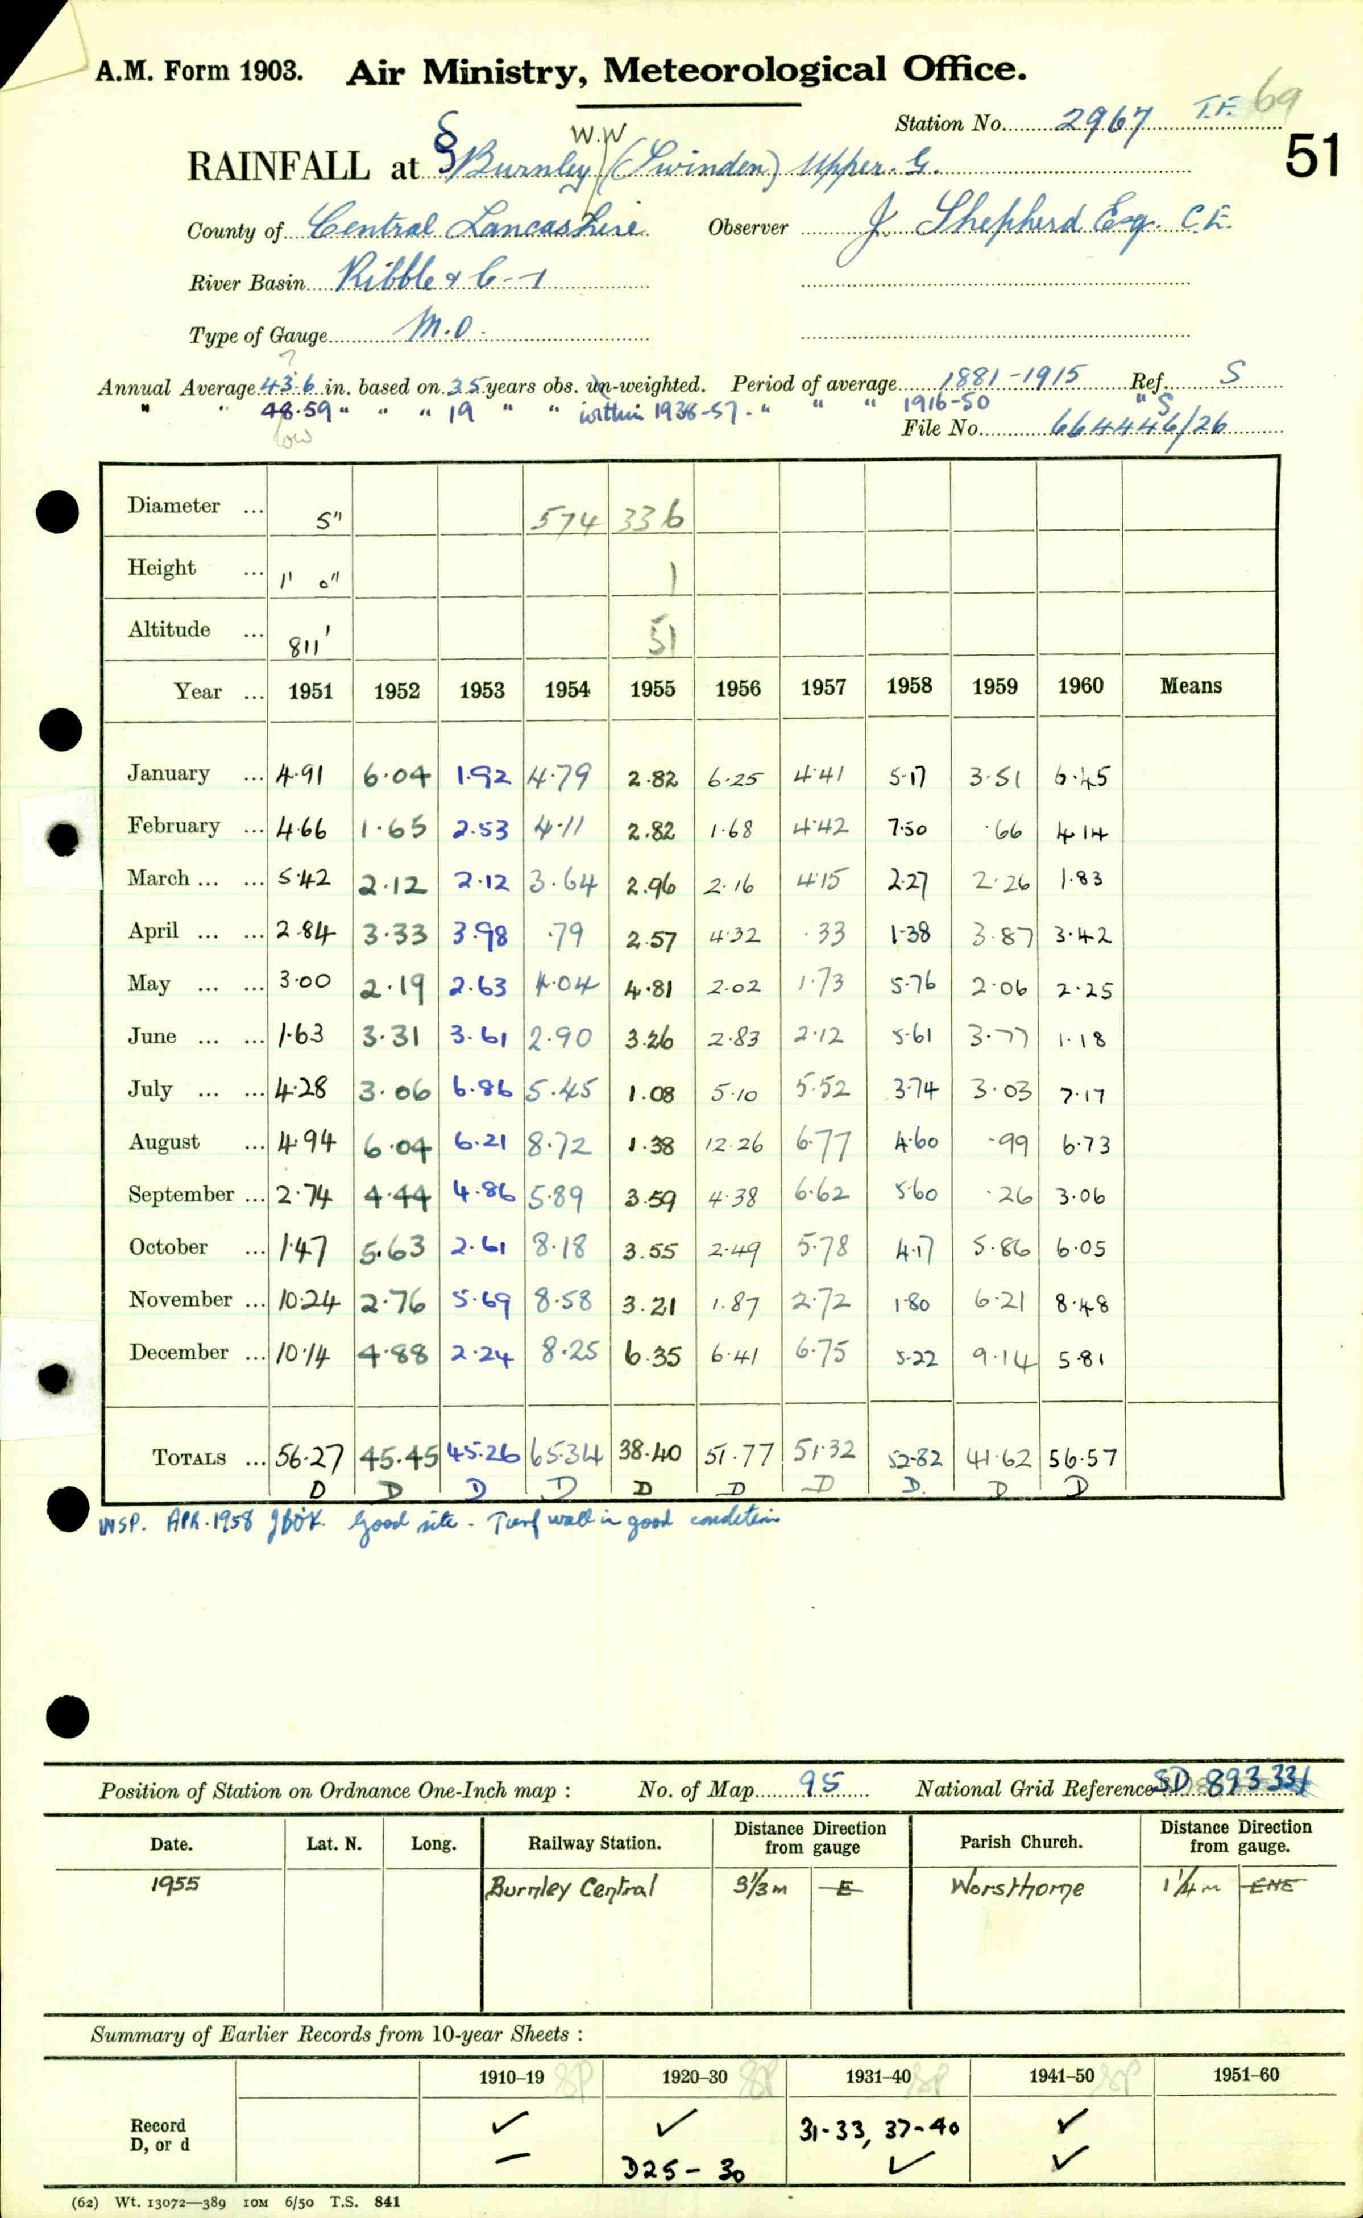 A.M. Form 1903. Air Ministry, Meteorological Office.
Station No. 2967 T.F. 69
51
W.W
RAINFALL at § Burnley (Swinden) Upper. G.
County of Central Lancashire Observer J. Shepherd Esq. C.E.
River Basin Ribble & C-1
Type of Gauge M.O.
?
Annual Average 43.6 in. based on 35 years obs. un-weighted. Period of average 1881-1915 Ref. S
" " 48.59 " " " 19 " " within 1938-57 - " " " 1916-50 " S
low
File No. 664446/26
Diameter ... 5" 574 336
Height ... 1' 0" 1
Altitude ... 811' 51
Year ... 1951 1952 1953 1954 1955 1956 1957 1958 1959 1960 Means
January ... 4.91 6.04 1.92 4.79 2.82 6.25 4.41 5.17 3.51 6.45
February ... 4.66 1.65 2.53 4.11 2.82 1.68 4.42 7.50 .66 4.14
March ... ... 5.42 2.12 2.12 3.64 2.96 2.16 4.15 2.27 2.26 1.83
April ... ... 2.84 3.33 3.98 .79 2.57 4.32 .33 1.38 3.87 3.42
May ... ... 3.00 2.19 2.63 4.04 4.81 2.02 1.73 5.76 2.06 2.25
June ... ... 1.63 3.31 3.61 2.90 3.26 2.83 2.12 5.61 3.77 1.18
July ... ... 4.28 3.06 6.86 5.45 1.08 5.10 5.52 3.74 3.03 7.17
August ... 4.94 6.04 6.21 8.72 1.38 12.26 6.77 4.60 .99 6.73
September ... 2.74 4.44 4.86 5.89 3.59 4.38 6.62 5.60 .26 3.06
October ... 1.47 5.63 2.61 8.18 3.55 2.49 5.78 4.17 5.86 6.05
November ... 10.24 2.76 5.69 8.58 3.21 1.87 2.72 1.80 6.21 8.48
December ... 10.14 4.88 2.24 8.25 6.35 6.41 6.75 5.22 9.14 5.81
TOTALS ... 56.27 45.45 45.26 65.34 38.40 51.77 51.32 52.82 41.62 56.57
D D D D D D D D. D D
INSP. APR. 1958 Good site - Turf wall in good condition
Position of Station on Ordnance One-Inch map : No. of Map 95 National Grid Reference SD 893 331
Date. Lat. N. Long. Railway Station. Distance from Direction gauge Parish Church. Distance from Direction gauge.
1955 Burnley Central 3⅓ m E Worsthorne 1¼ m ENE
Summary of Earlier Records from 10-year Sheets :
1910–19 1920–30 1931–40 1941–50 1951–60
Record ✓ ✓ 31-33, 37-40 ✓
D, or d — D25 - 30 ✓ ✓
(62) Wt. 13072—389 10M 6/50 T.S. 841